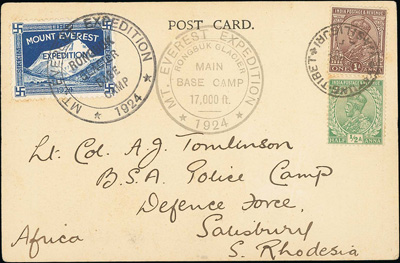 POST CARD.
MOUNT EVEREST
EXPEDITION
1924
MT. EVEREST EXPEDITION
RONGBUK GLACIER
CAMP
1924
MT. EVEREST EXPEDITION
RONGBUK GLACIER
MAIN
BASE CAMP
17,000 ft.
1924
INDIA POSTAGE & REVENUE
INDIA POSTAGE
HALF ANNA
Lt. Col. A. J. Tomlinson
B.S.A. Police Camp
Defence Force,
Salisbury
Africa
S. Rhodesia